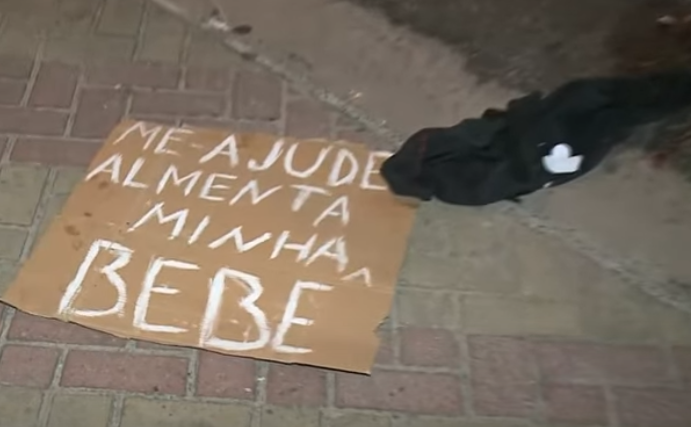 ME AJUDE
ALMENTA
MINHA
BEBÊ